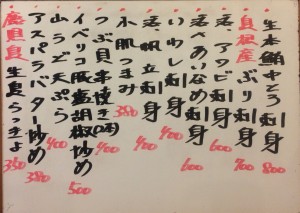 生本鮪中とろ刺身 800
島根産ぶり刺身 700
活、アワビ刺身
活べあいなめ刺身 600
いわし刺身 400
活、帆立刺身 400
小肌つまみ 380
つぶ貝串焼き(2本) 400
イベリコ豚塩胡椒炒め 500
山うど天ぷら 400
アスパラバター炒め 380
鹿児島 生らっきょ 350